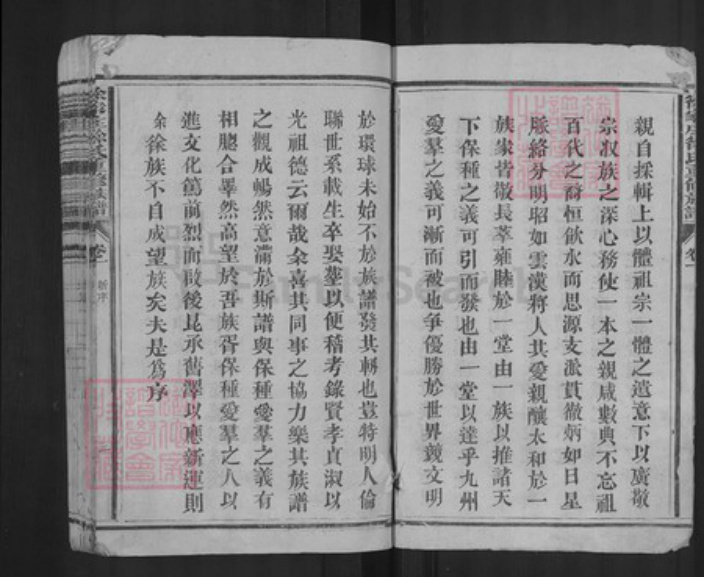 親自採輯上以體祖宗一體之遺意下以廣敬
宗收族之深心務使一本之親咸數典不忘祖
百代之裔恒飲水而思源支派貫徹炳如日星
脈絡分明昭如雲漢將人其愛親釀太和於一
族家皆敬長萃雍睦於一堂由一族以推諸天
下保種之義可引而發也由一堂以達乎九州
愛羣之義可漸而被也爭優勝於世界競文明
於環球未始不於族譜發其軔也豈特明人倫
聯世系載生卒娶塟以便稽考錄賢孝貞淑以
光祖德云爾哉余喜其同事之協力樂其族譜
之觀成暢然意滿於斯譜與保種愛羣之義有
相腮合睪然高望於吾族胥保種愛羣之人以
進文化篤前烈而啟後昆承舊澤以應新運則
余徐族不自成望族矣夫是為序
徐氏重修族譜
卷一
新序
FamilySearch